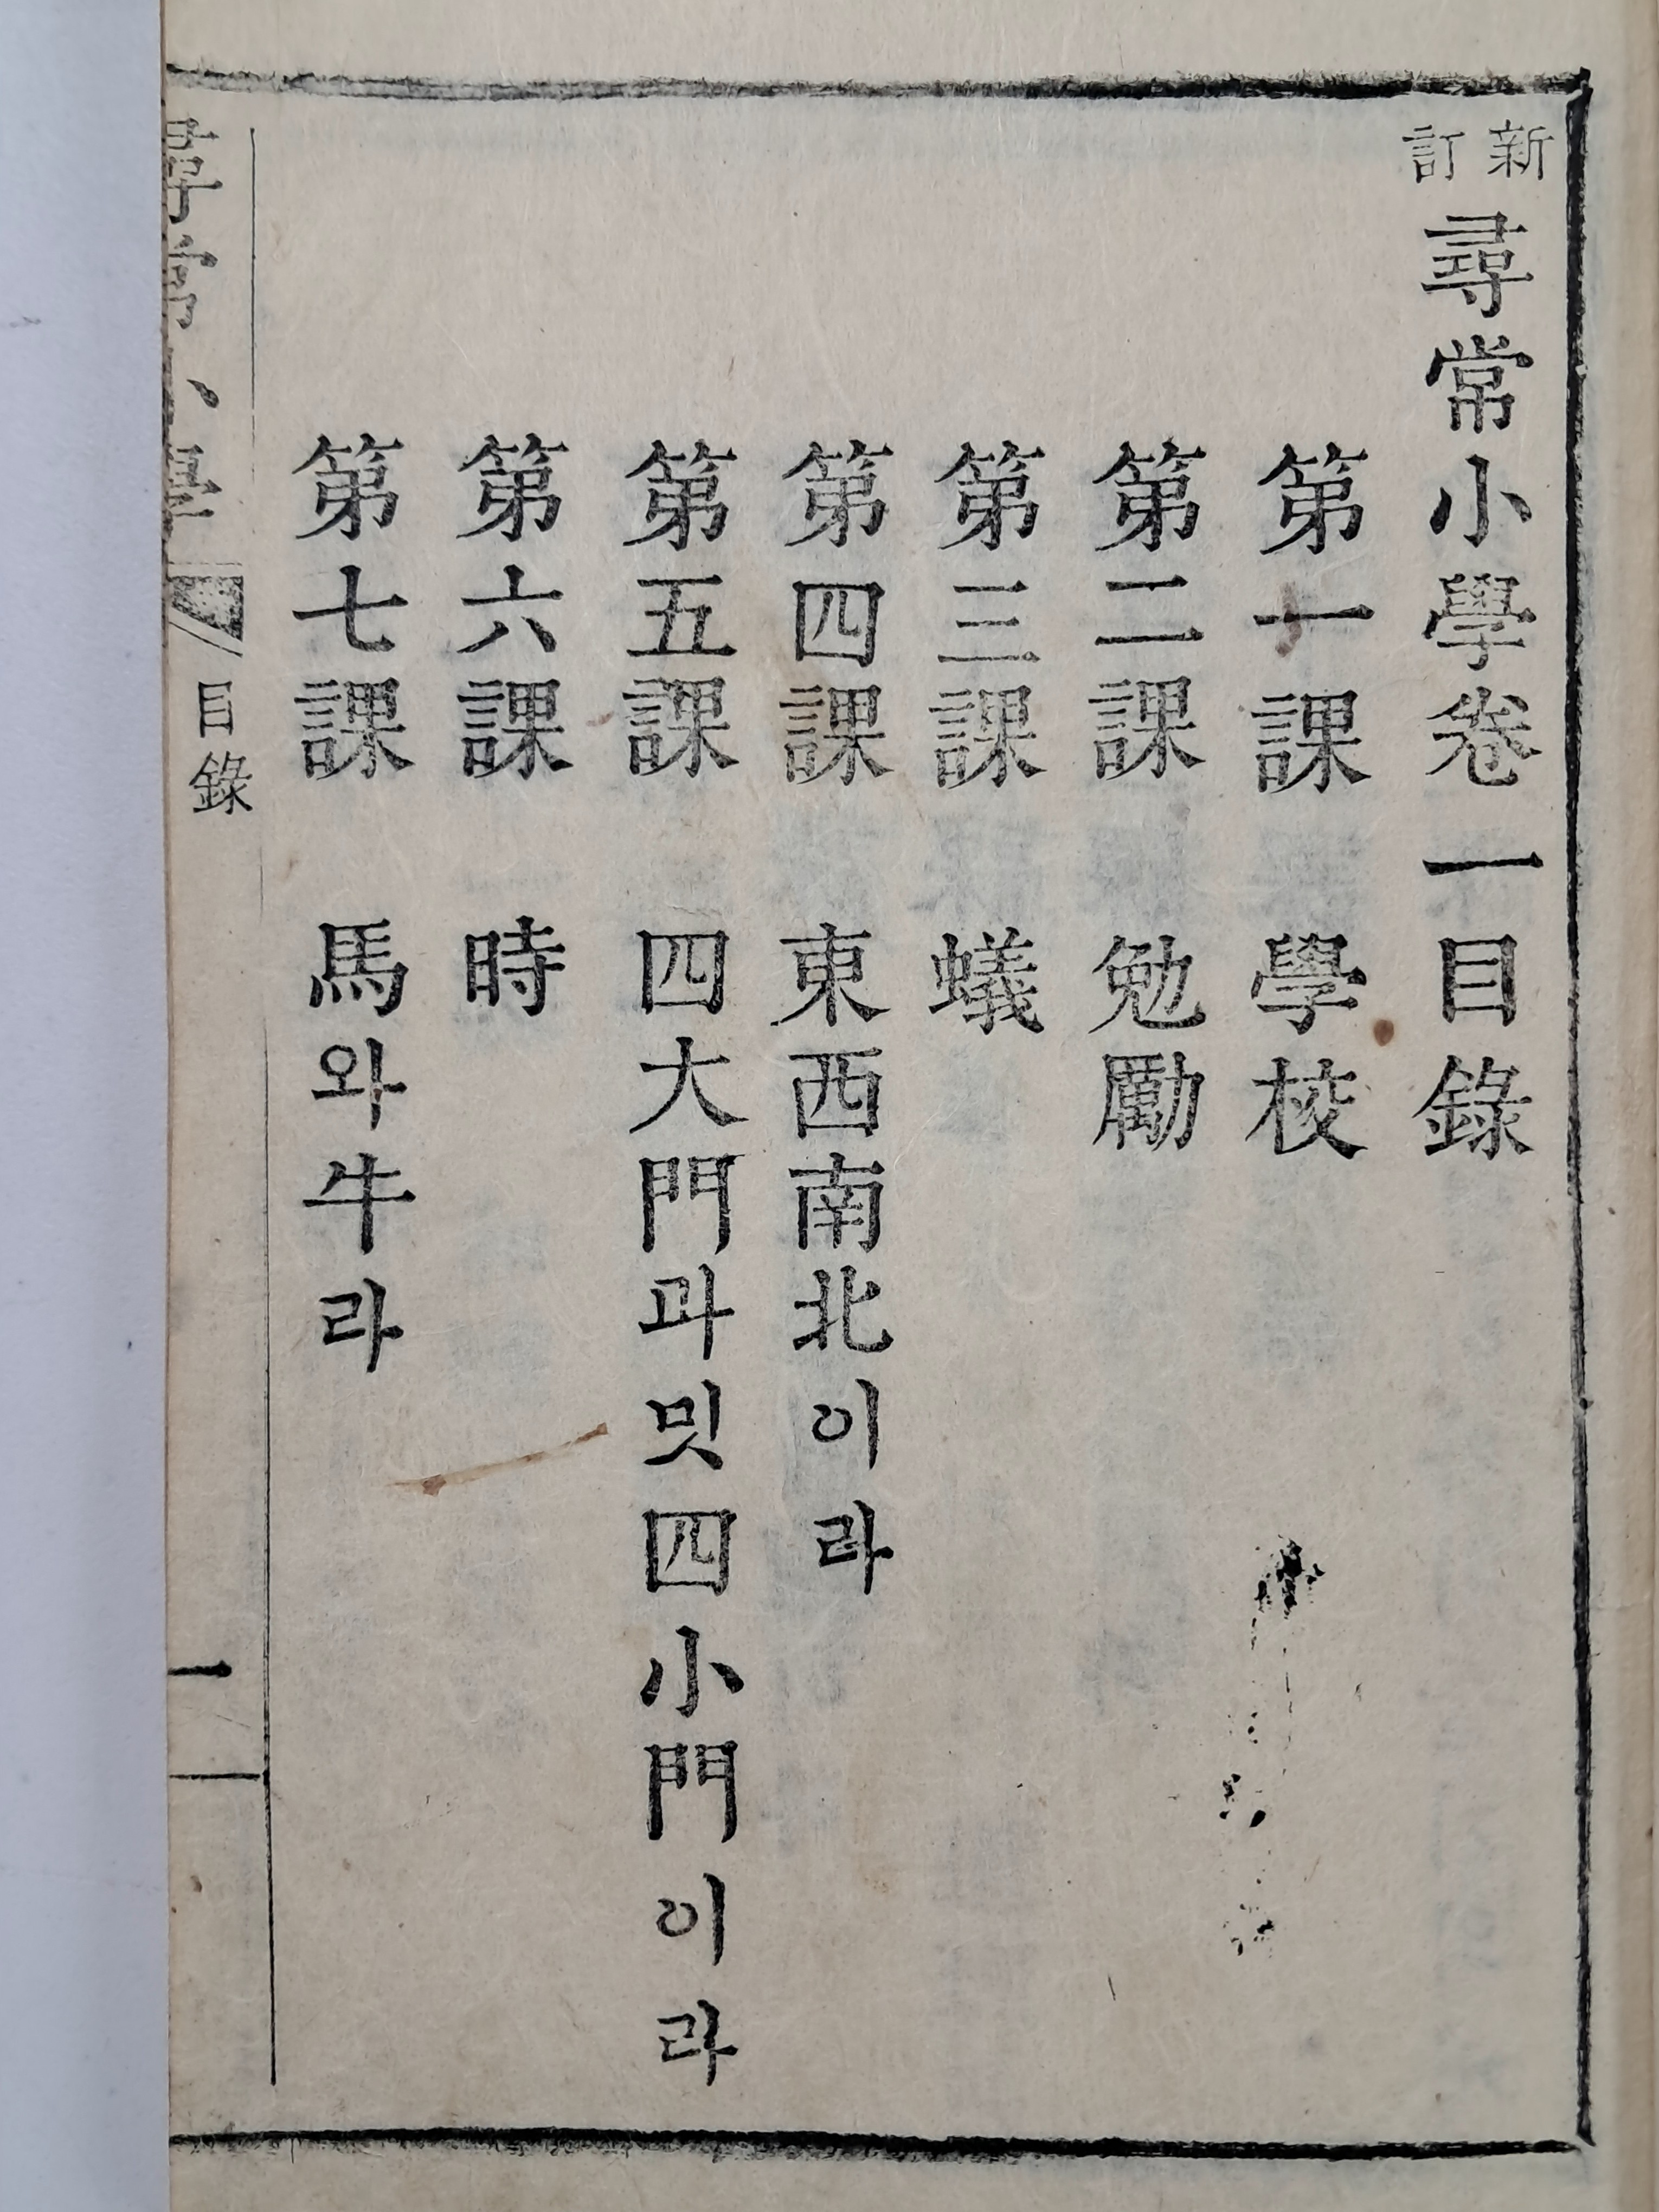 新訂尋常小學卷一目錄
第一課 學校
第二課 勉勵
第三課 蟻
第四課 東西南北이라
第五課 四大門과밋四小門이라
第六課 時
第七課 馬와牛라
目錄
一